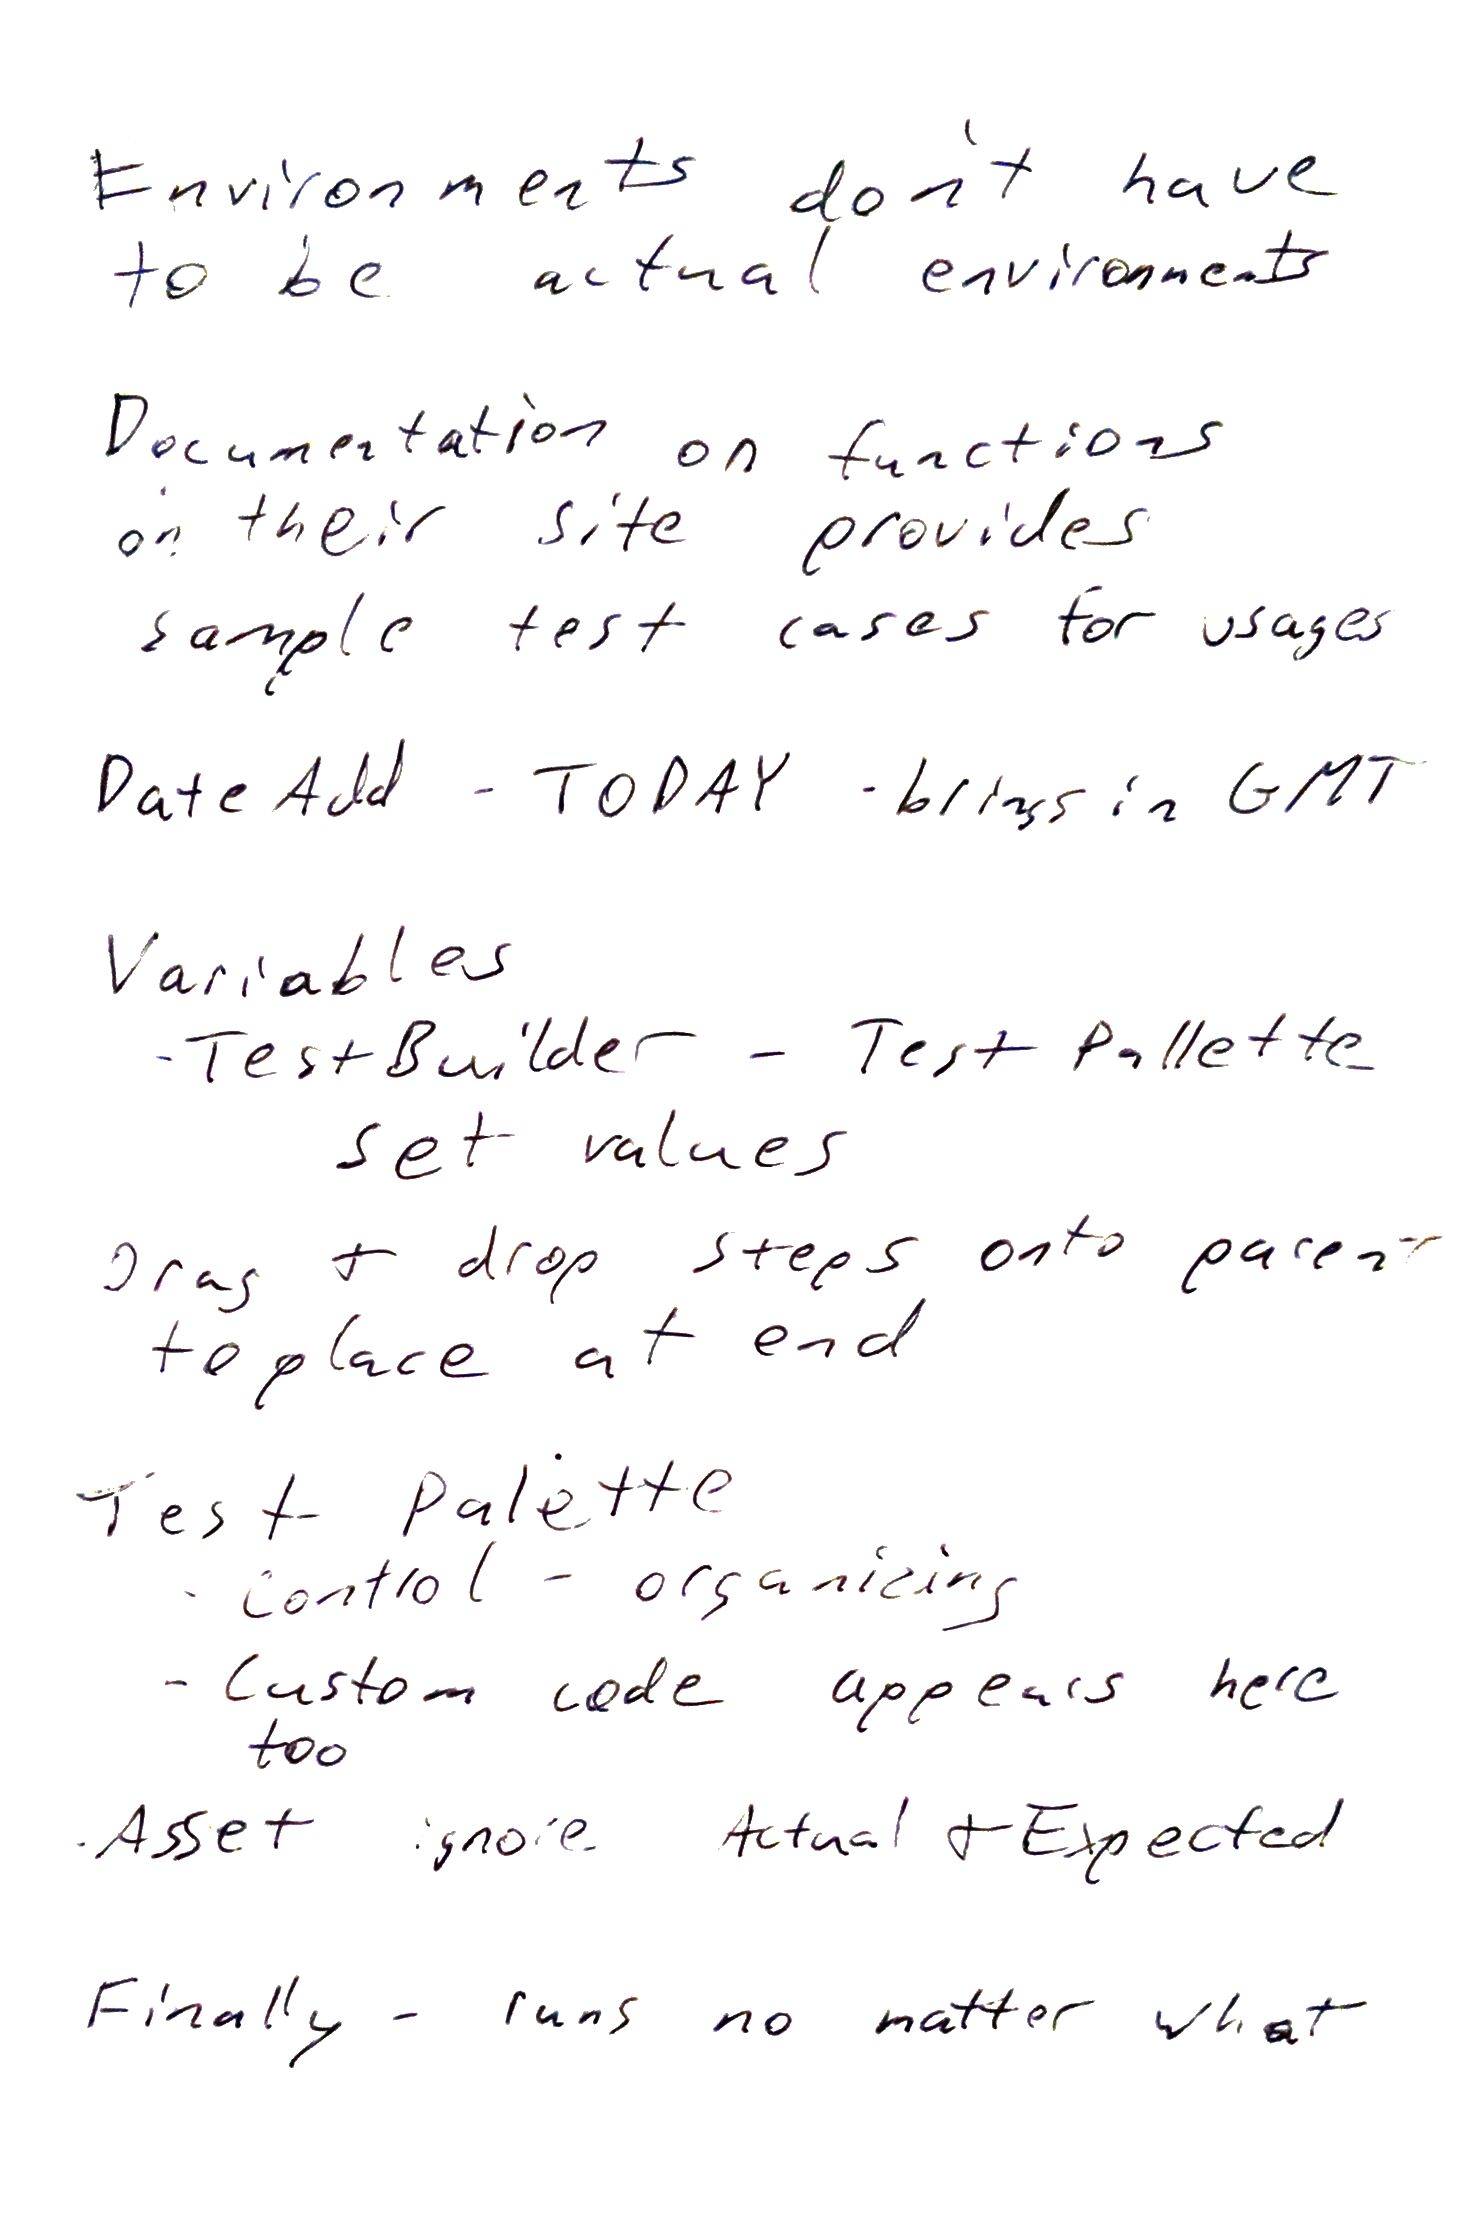 Environments don't have
to be actual environments
Documentation on functions
on their site provides
sample test cases for usages
DateAdd - TODAY - brings in GMT
Variables
- TestBuilder - Test Pallette
set values
Drag + drop steps onto parent
to place at end
Test Palette
- Control - organizing
- Custom code appears here
too
- Asset ignore Actual + Expected
Finally - runs no matter what